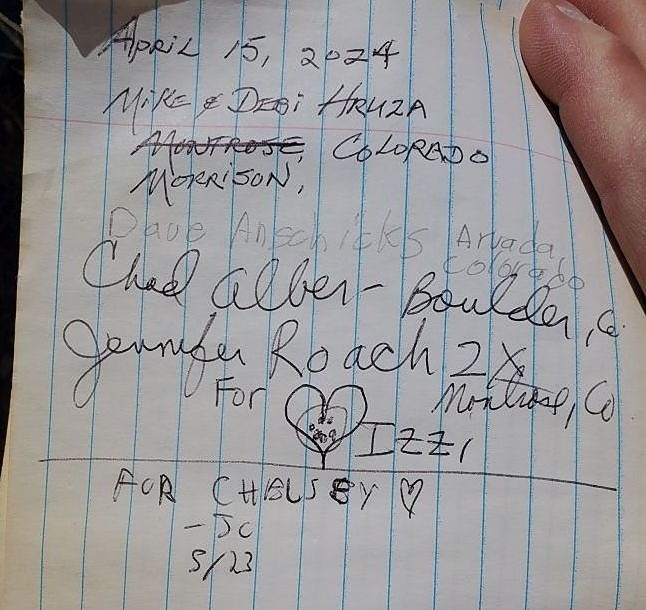 April 15, 2024
Mike & Debi Hruza
Montrose, Colorado
Morrison,
Dave Anschicks Arvada,
Colorado
Chad Alber - Boulder, Co
Jennifer Roach 2X
For Montrose, CO
Izzi
For Chelsey ♡
- JC
5/23